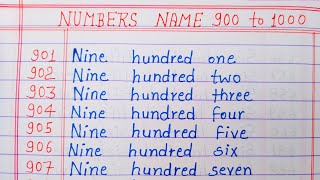 NUMBERS NAME 900 to 1000
901 Nine hundred one
902 Nine hundred two
903 Nine hundred three
904 Nine hundred four
905 Nine hundred five
906 Nine hundred six
907 Nine hundred seven